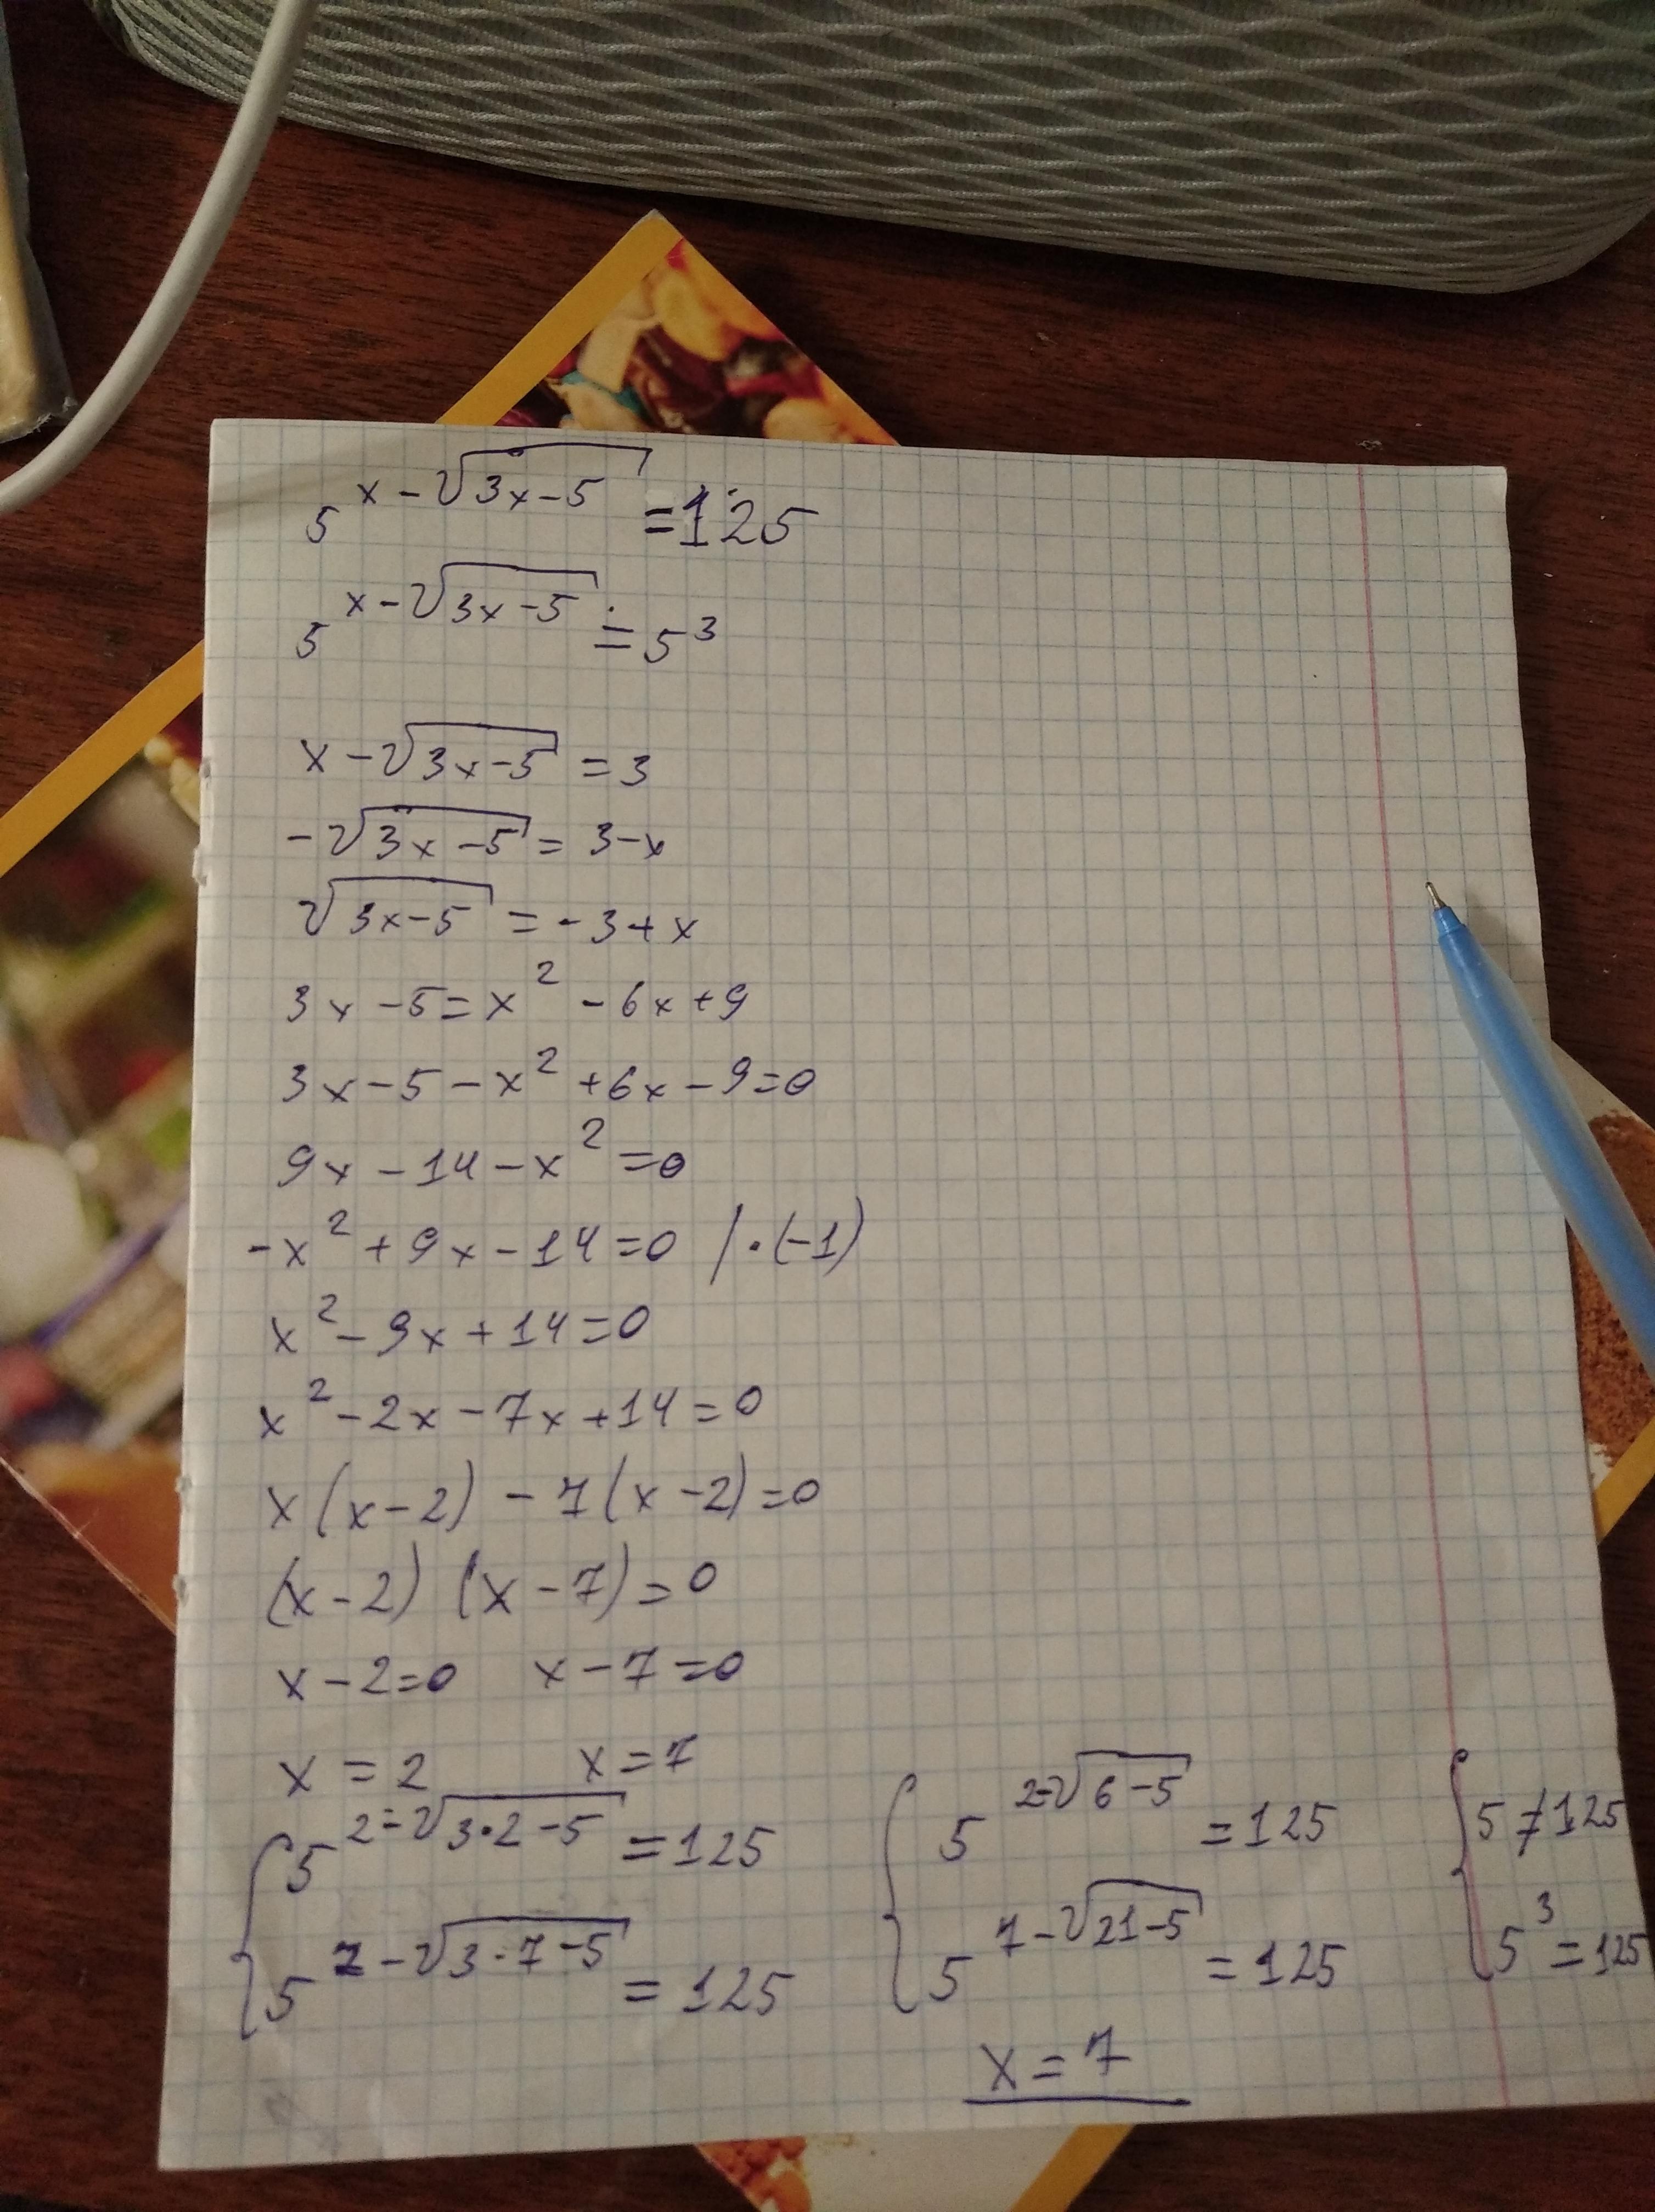 5^{x-√(3x-5)} = 125
5^{x-√(3x-5)} = 5^3
x - √(3x-5) = 3
-√(3x-5) = 3-x
√(3x-5) = -3+x
3x-5 = x^2 - 6x + 9
3x-5-x^2+6x-9=0
9x-14-x^2=0
-x^2+9x-14=0 /·(-1)
x^2-9x+14=0
x^2-2x-7x+14=0
x(x-2)-7(x-2)=0
(x-2)(x-7)=0
x-2=0 x-7=0
x=2 x=7
{ 5^{2-√(3·2-5)} = 125 { 5^{2-√(6-5)} = 125 { 5≠125
5^{7-√(3·7-5)} = 125 5^{7-√(21-5)} = 125 5^3=125
x=7